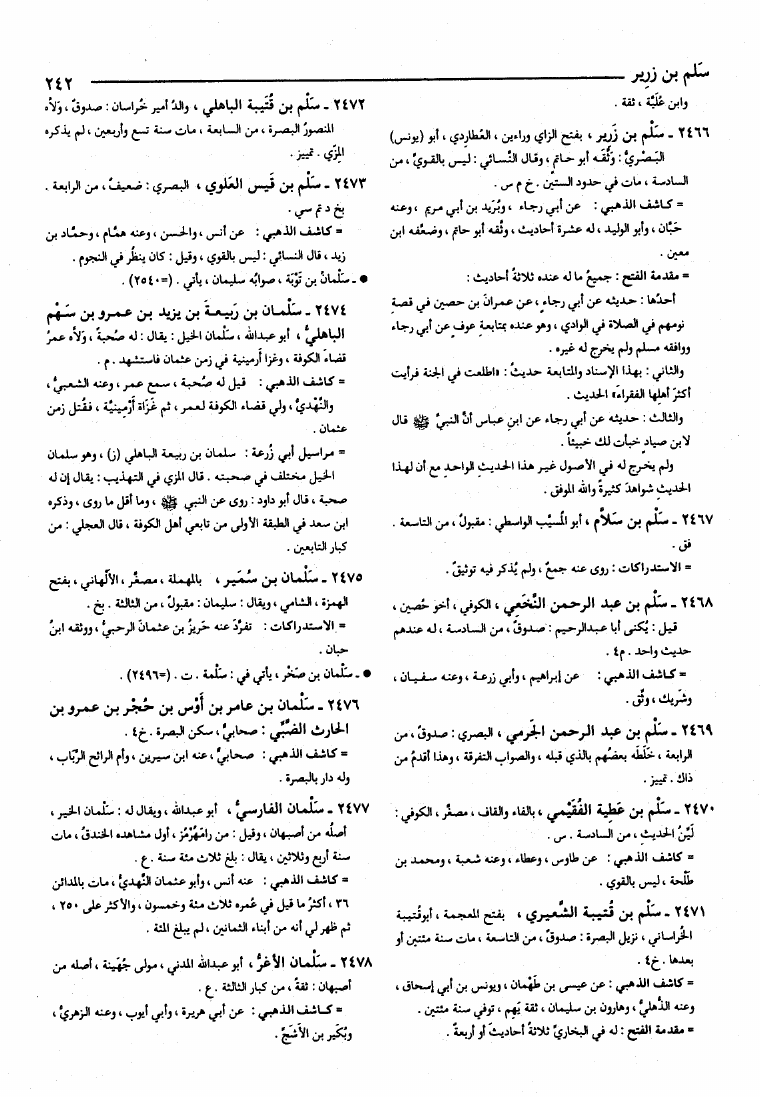 سَلم بن زرير
٢٤٢
وابن عُلَيَّة ، ثقة .
٢٤٦٦ ـ سَلْم بن زَرير ، بفتح الزاي وراءين ، العُطاردِي ، أبو (يونس)
البَصْريُّ : وَثَّقَه أبو حاتمٍ ، وقال النَّسائي : ليس بالقويِّ ، من
السادسة ، مات في حدود الستين . خ م س .
= كاشف الذهبي : عن أبي رجاء ، وبُرَيد بن أبي مريم ، وعنه
حَبَّان ، وأبو الوليد ، له عشرة أحاديث ، وثَّقه أبو حاتم ، وضعَّفه ابن
معين .
= مقدمة الفتح : جميعُ ما له عنده ثلاثةُ أحاديث :
أحدُها : حديثه عن أبي رجاءٍ ، عن عمرانَ بن حصين في قصةِ
نومهم في الصلاة في الوادي ، وهو عنده بمتابعةِ عوفٍ عن أبي رجاء
ووافقه مسلم ولم يخرج له غيره .
والثاني : بهذا الإسناد والمتابعة حديثُ : «اطلعت في الجنة فرأيت
أكثرَ أهلِها الفقراءَ» الحديث .
والثالث : حديثه عن أبي رجاء عن ابنِ عباس أنَّ النبيَّ ﷺ قال
لابن صيادٍ خبأت لك خبيئاً .
ولم يخرج له في الأصول غير هذا الحديثِ الواحدِ مع أن لهذا
الحديثِ شواهدَ كثيرةً والله الموفق .
٢٤٦٧ ـ سَلْم بن سَلاَّم ، أبو المُسيَّب الواسطي : مقبولٌ ، من التاسعة .
فق .
= الاستدراكات : روى عنه جمعٌ ، ولم يُذكر فيه توثيقٌ .
٢٤٦٨ ـ سَلْم بن عبد الرحمن النَّخَعي ، الكوفي ، أخو حُصين ،
قيل : يُكنى أبا عبدالرحيم : صدوقٌ ، من السادسة ، له عندهم
حديث واحد . م٤ .
= كاشف الذهبي : عن إبراهيم ، وأبي زرعة ، وعنه سفيان ،
وشَريك ، وثِّق .
٢٤٦٩ ـ سَلْم بن عبد الرحمن الجَرمي ، البصري : صدوقٌ ، من
الرابعة ، خَلَطَه بعضُهم بالذي قبله ، والصواب التفرقة ، وهذا أقدمُ من
ذاك . تمييز .
٢٤٧٠ ـ سَلْم بن عَطية الفُقَيْمي ، بالفاء والقاف ، مصغَّر ، الكوفي :
لَيِّنُ الحديثِ ، من السادسة . س .
= كاشف الذهبي : عن طاوس ، وعطاء ، وعنه شعبة ، ومحمد بن
طَلْحة ، ليس بالقوي .
٢٤٧١ ـ سَلْم بن قُتيبة الشَّعيري ، بفتح المعجمة ، أبوقُتيبة
الخُراساني ، نزيل البصرة : صدوقٌ ، من التاسعة ، مات سنة مئتين أو
بعدها . خ٤ .
= كاشف الذهبي : عن عيسى بن طَهْمان ، ويونس بن أبي إسحاق ،
وعنه الذُّهليُّ ، وهارون بن سليمان ، ثقة يَهِم ، توفي سنة مئتين .
= مقدمة الفتح : له في البخاريِّ ثلاثةُ أحاديثَ أو أربعةٌ .
٢٤٧٢ ـ سَلْم بن قُتيبة الباهلي ، والدُ أمير خُراسان : صدوقٌ ، وَلاَّه
المنصورُ البصرة ، من السابعة ، مات سنة تسع وأربعين ، لم يذكره
المزِّي . تمييز .
٢٤٧٣ ـ سَلْم بن قَيس العَلوي ، البصري : ضعيفٌ ، من الرابعة .
بخ د تم سي .
= كاشف الذهبي : عن أنس ، والحسن ، وعنه همَّام ، وحمَّاد بن
زيد ، قال النسائي : ليس بالقوي ، وقيل : كان ينظُر في النجوم .
● ـ سَلْمانُ بن تَوْبَة ، صوابُه سليمان ، يأتي . (=٢٥٤٠) .
٢٤٧٤ ـ سَلْمان بن رَبيعة بن يزيد بن عمرو بن سَهْم
الباهليُّ ، أبو عبدالله ، سَلْمان الخيل : يقال : له صُحبةٌ ، وَلاَّه عمرُ
قضاءَ الكوفة ، وغزا أرمينية في زمن عثمان فاستشهد . م .
= كاشف الذهبي : قيل له صُحبة ، سمع عمر ، وعنه الشعبيُّ ،
والنَّهْديُّ ، ولي قضاء الكوفة لعمر ، ثم غَزَاة أَرْمِينِيَّة ، فقُتل زمن
عثمان .
= مراسيل أبي زُرعة : سلمان بن ربيعة الباهلي (ز) ، وهو سلمان
الخيل مختلف في صحبته . قال المزي في التهذيب : يقال إن له
صحبة ، قال أبو داود : روى عن النبي ﷺ ، وما أقل ما روى ، وذكره
ابن سعد في الطبقة الأولى من تابعي أهل الكوفة ، قال العجلي : من
كبار التابعين .
٢٤٧٥ ـ سَلْمان بن سُمَير ، بالمهملة ، مصغَّر ، الأَلْهاني ، بفتح
الهمزة ، الشامي ، ويقال : سليمان : مقبولٌ ، من الثالثة . بخ .
= الاستدراكات : تفرَّدَ عنه حَريزُ بن عثمانَ الرحبيُّ ، ووثقه ابنُ
حبان .
● ـ سَلْمان بن صَخْر ، يأتي في : سَلَمة . ت . (=٢٤٩٦) .
٢٤٧٦ ـ سَلْمان بن عامر بن أَوْس بن حُجْر بن عمرو بن
الحارث الضَّبِّي : صحابيٌّ ، سكن البصرة . خ٤ .
= كاشف الذهبي : صحابيٌّ ، عنه ابن سيرين ، وأم الرائح الرَّبَاب ،
وله دار بالبصرة .
٢٤٧٧ ـ سَلْمان الفارسيُّ ، أبو عبدالله ، ويقال له : سَلْمان الخير ،
أصلُه من أصبهان ، وقيل : من رامَهُرْمُز ، أول مشاهده الخندقُ ، مات
سنة أربع وثلاثين ، يقال : بلغ ثلاث مئة سنة . ع .
= كاشف الذهبي : عنه أنس ، وأبو عثمان النَّهْديُّ ، مات بالمدائن
٣٦ ، أكثرُ ما قيل في عُمره ثلاث مئة وخمسون ، والأكثر على ٢٥٠ ،
ثم ظهر لي أنه من أبناء الثمانين ، لم يبلغ المئة .
٢٤٧٨ ـ سَلْمان الأغرُّ ، أبو عبدالله المدني ، مولى جُهَينة ، أصله من
أصبهان : ثقةٌ ، من كبار الثالثة . ع .
= كاشف الذهبي : عن أبي هريرة ، وأبي أيوب ، وعنه الزهريُّ ،
وبُكَير بن الأشَجّ .